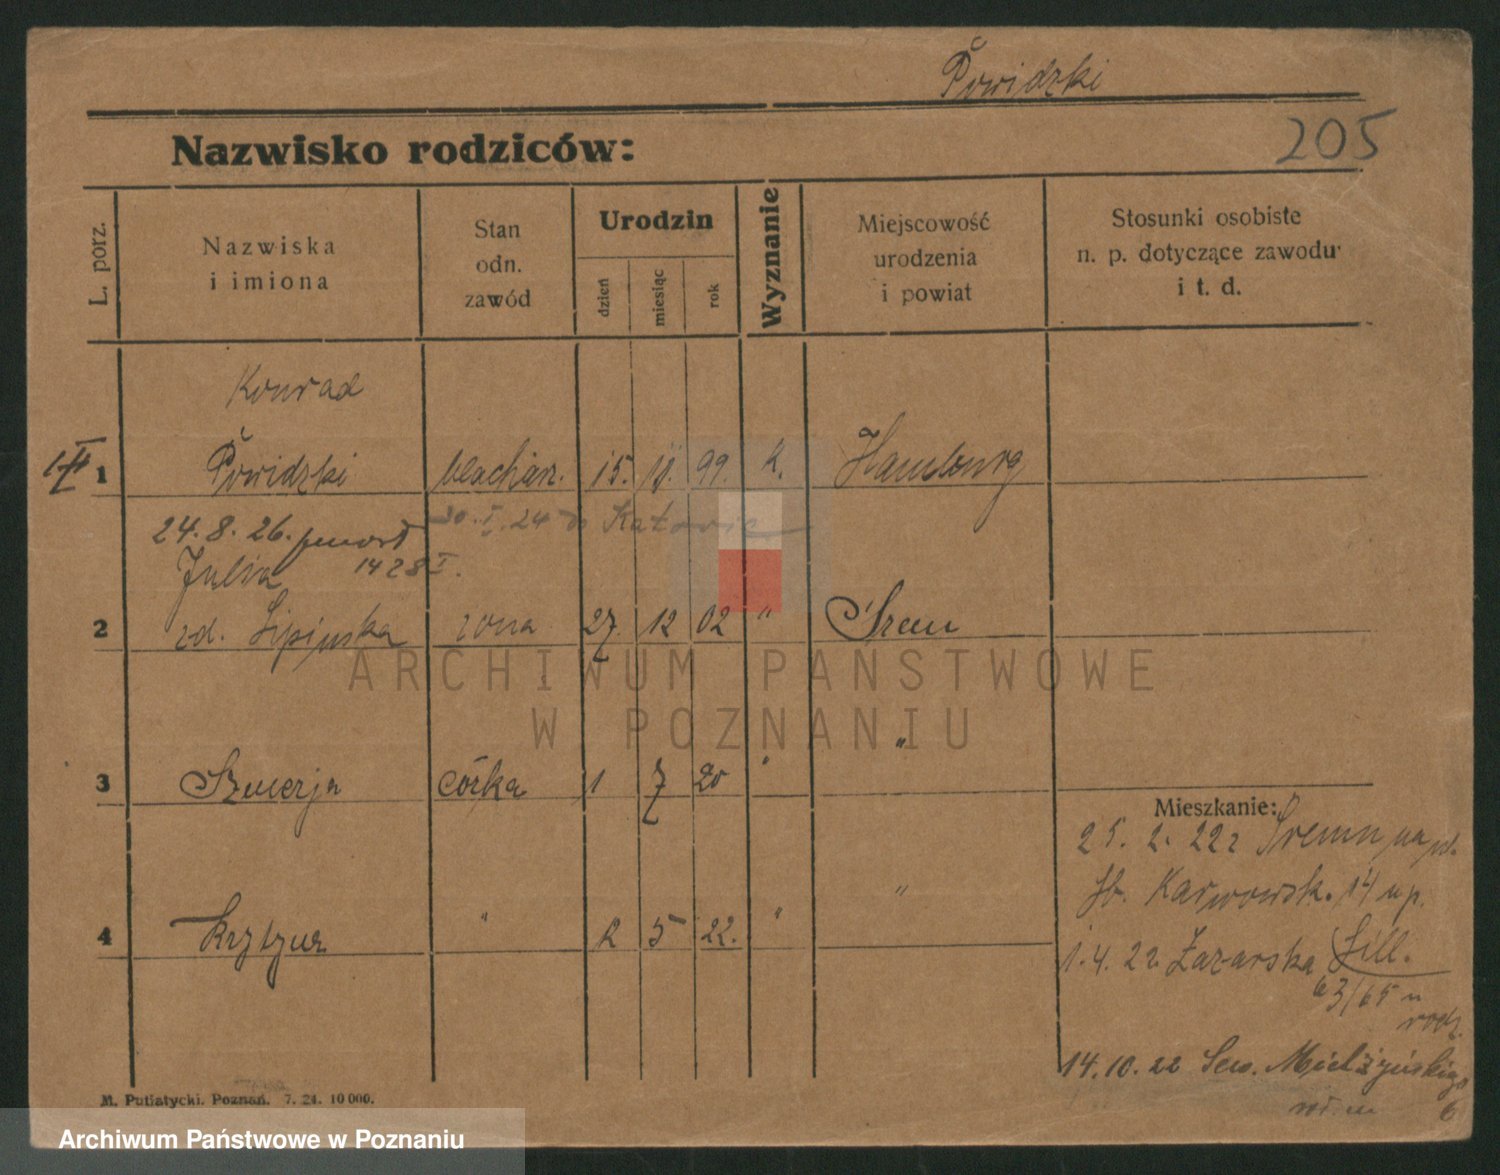 Powidzki
205
Nazwisko rodziców:
L. porz.
Nazwiska
i imiona
Stan
odn.
zawód
Urodzin
dzień
miesiąc
rok
Wyznanie
Miejscowość
urodzenia
i powiat
Stosunki osobiste
n. p. dotyczące zawodu
i t. d.
Konrad
1 Powidzki blacharz. 15. 11. 99. k. Hamburg
30. I. 24 do Katowic
24. 8. 26.
Julia 1428 I.
2 zd. Lipinska żona 27. 12 02 " Śrem
ARCHIWUM PAŃSTWOWE
W POZNANIU
3 córka 1 7 20 " "
Mieszkanie:
25. 2. 22
Karwowsk. 14
4 " 2 5 22. " "
1. 4. 22. Łazarska
63/65
14. 10. 22 Sew. Mielżyńskiego
6
M. Putiatycki. Poznań. 7. 24. 10 000.
Archiwum Państwowe w Poznaniu